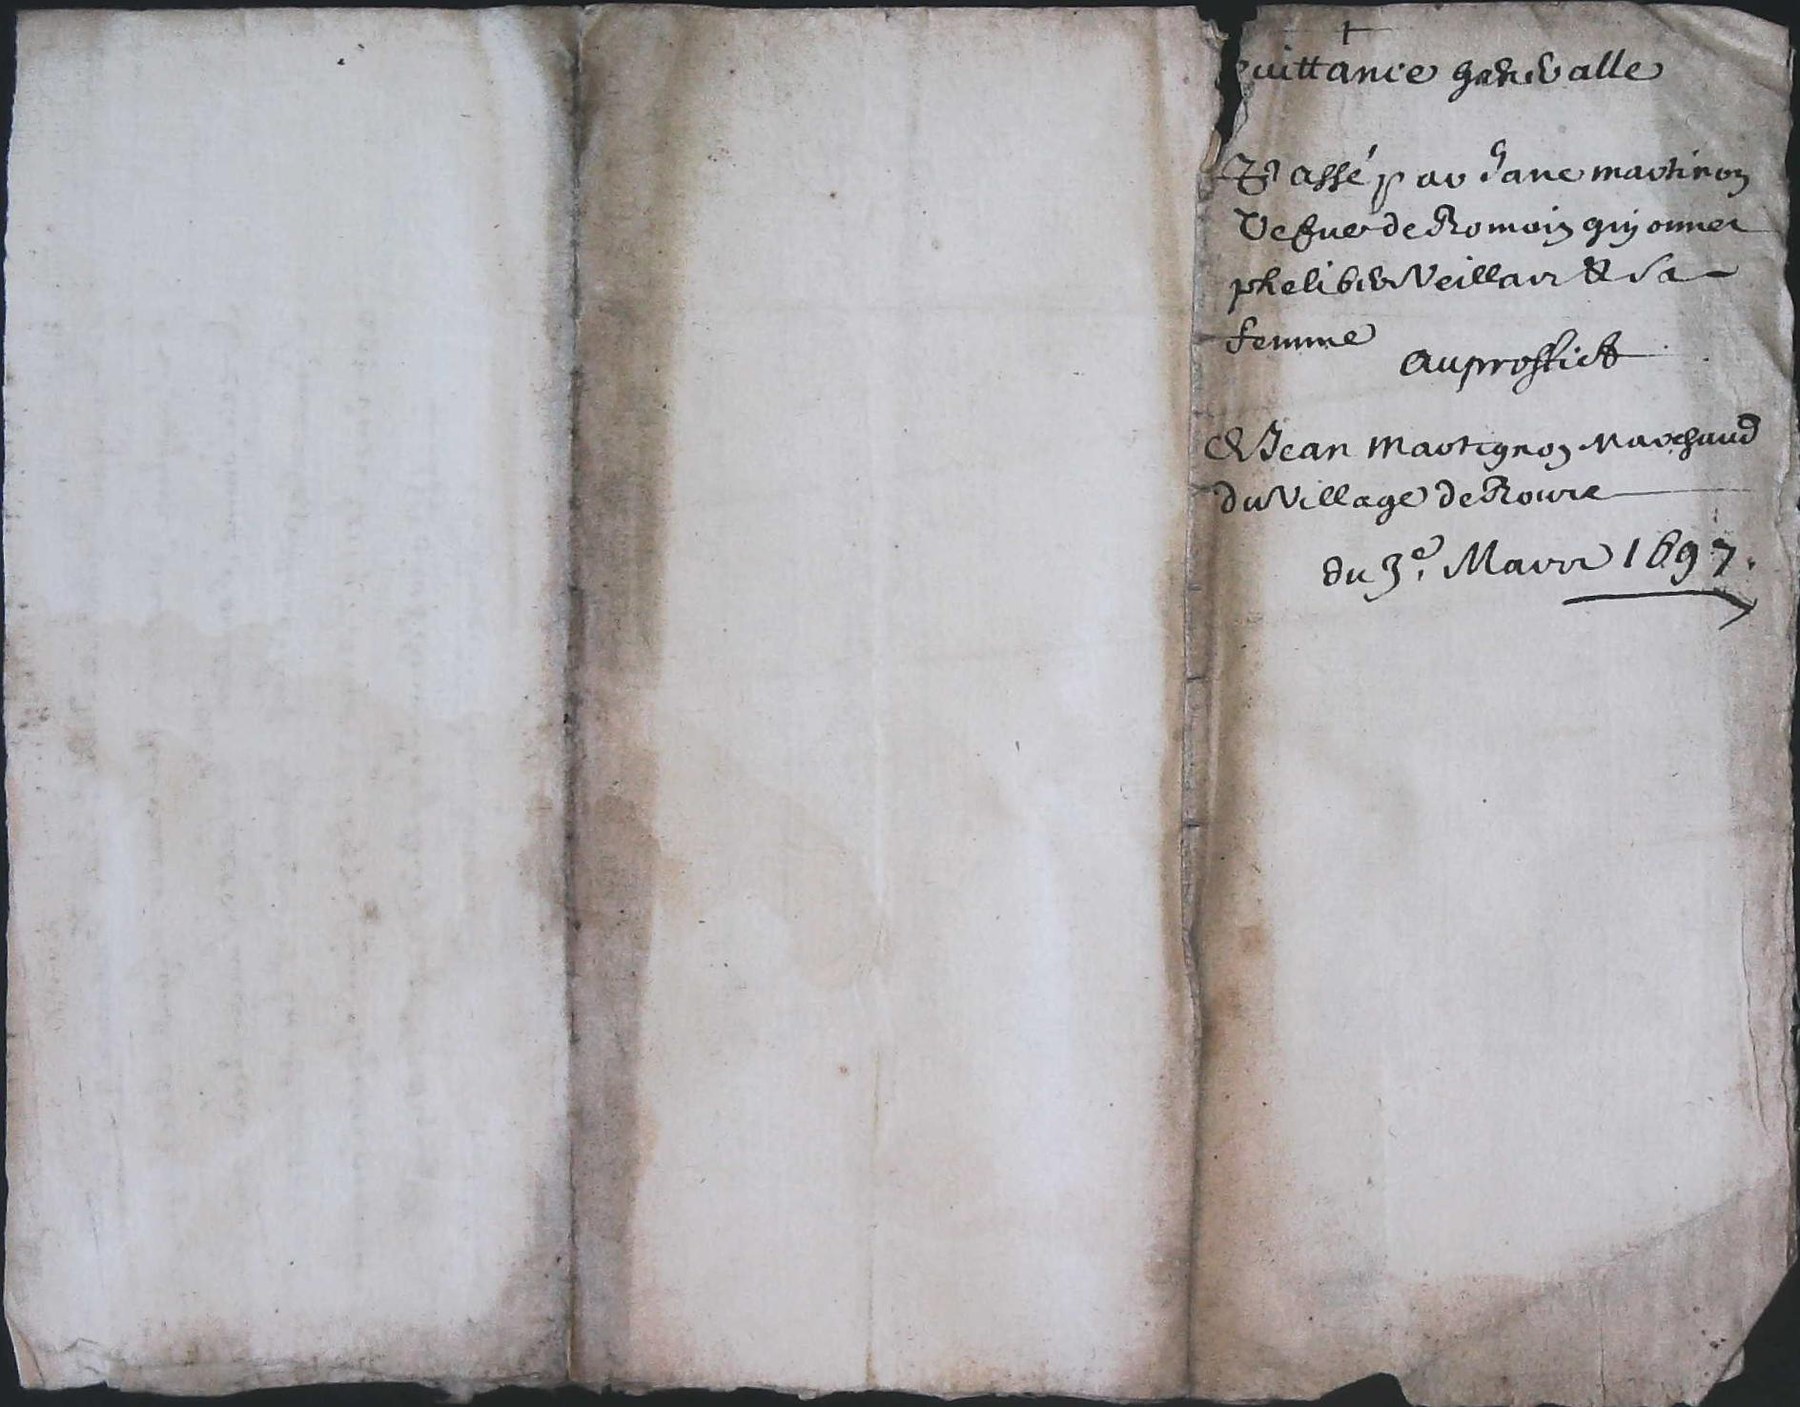 quittance generalle
Passé par Jane martinon
Vefue de Romain guyonnet
phelibert Veillan & sa
femme
au proffict
de Jean Martignon Marchand
du Village de Roure
du 3e. Mars 1697.